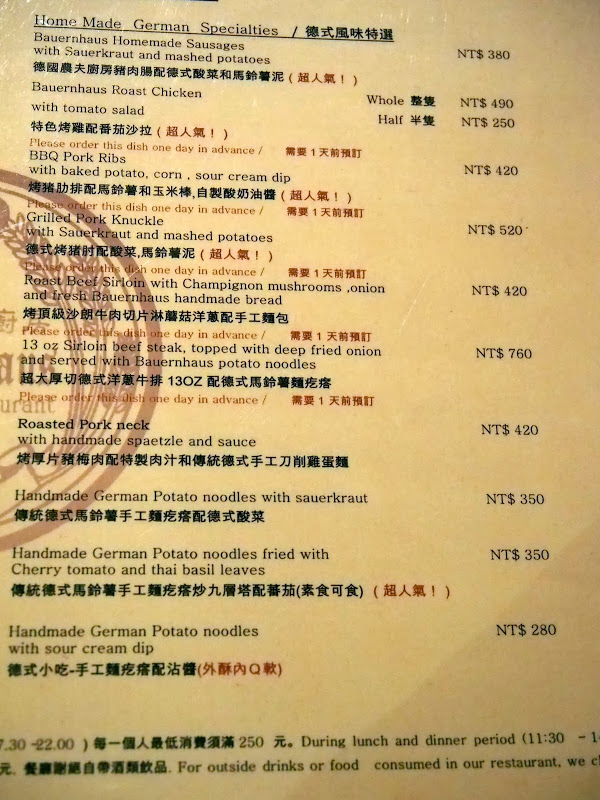 Home Made German Specialties / 德式風味特選
Bauernhaus Homemade Sausages
with Sauerkraut and mashed potatoes NT$ 380
德國農夫廚房豬肉腸配德式酸菜和馬鈴薯泥 ( 超人氣！)
Bauernhaus Roast Chicken Whole 整隻 NT$ 490
with tomato salad Half 半隻 NT$ 250
特色烤雞配番茄沙拉 ( 超人氣！)
Please order this dish one day in advance / 需要 1 天前預訂
BBQ Pork Ribs
with baked potato, corn , sour cream dip NT$ 420
烤猪肋排配馬鈴薯和玉米棒,自製酸奶油醬 ( 超人氣！)
Please order this dish one day in advance / 需要 1 天前預訂
Grilled Pork Knuckle
with Sauerkraut and mashed potatoes NT$ 520
德式烤猪肘配酸菜,馬鈴薯泥 ( 超人氣！)
Please order this dish one day in advance / 需要 1 天前預訂
Roast Beef Sirloin with Champignon mushrooms ,onion
and fresh Bauernhaus handmade bread NT$ 420
烤頂級沙朗牛肉切片淋蘑菇洋蔥配手工麵包
Please order this dish one day in advance / 需要 1 天前預訂
13 oz Sirloin beef steak, topped with deep fried onion
and served with Bauernhaus potato noodles NT$ 760
超大厚切德式洋蔥牛排 13OZ 配德式馬鈴薯麵疙瘩
Please order this dish one day in advance / 需要 1 天前預訂
urant
Roasted Pork neck
with handmade spaetzle and sauce NT$ 420
烤厚片豬梅肉配特製肉汁和傳統德式手工刀削雞蛋麵
Handmade German Potato noodles with sauerkraut NT$ 350
傳統德式馬鈴薯手工麵疙瘩配德式酸菜
Handmade German Potato noodles fried with NT$ 350
Cherry tomato and thai basil leaves
傳統德式馬鈴薯手工麵疙瘩炒九層塔配蕃茄(素食可食) ( 超人氣！)
Handmade German Potato noodles NT$ 280
with sour cream dip
德式小吃-手工麵疙瘩配沾醬(外酥內Q軟)
7.30 -22.00 ) 每一個人最低消費須滿 250 元。During lunch and dinner period (11:30 - 1
元. 餐廳謝絕自帶酒類飲品. For outside drinks or food consumed in our restaurant, we c